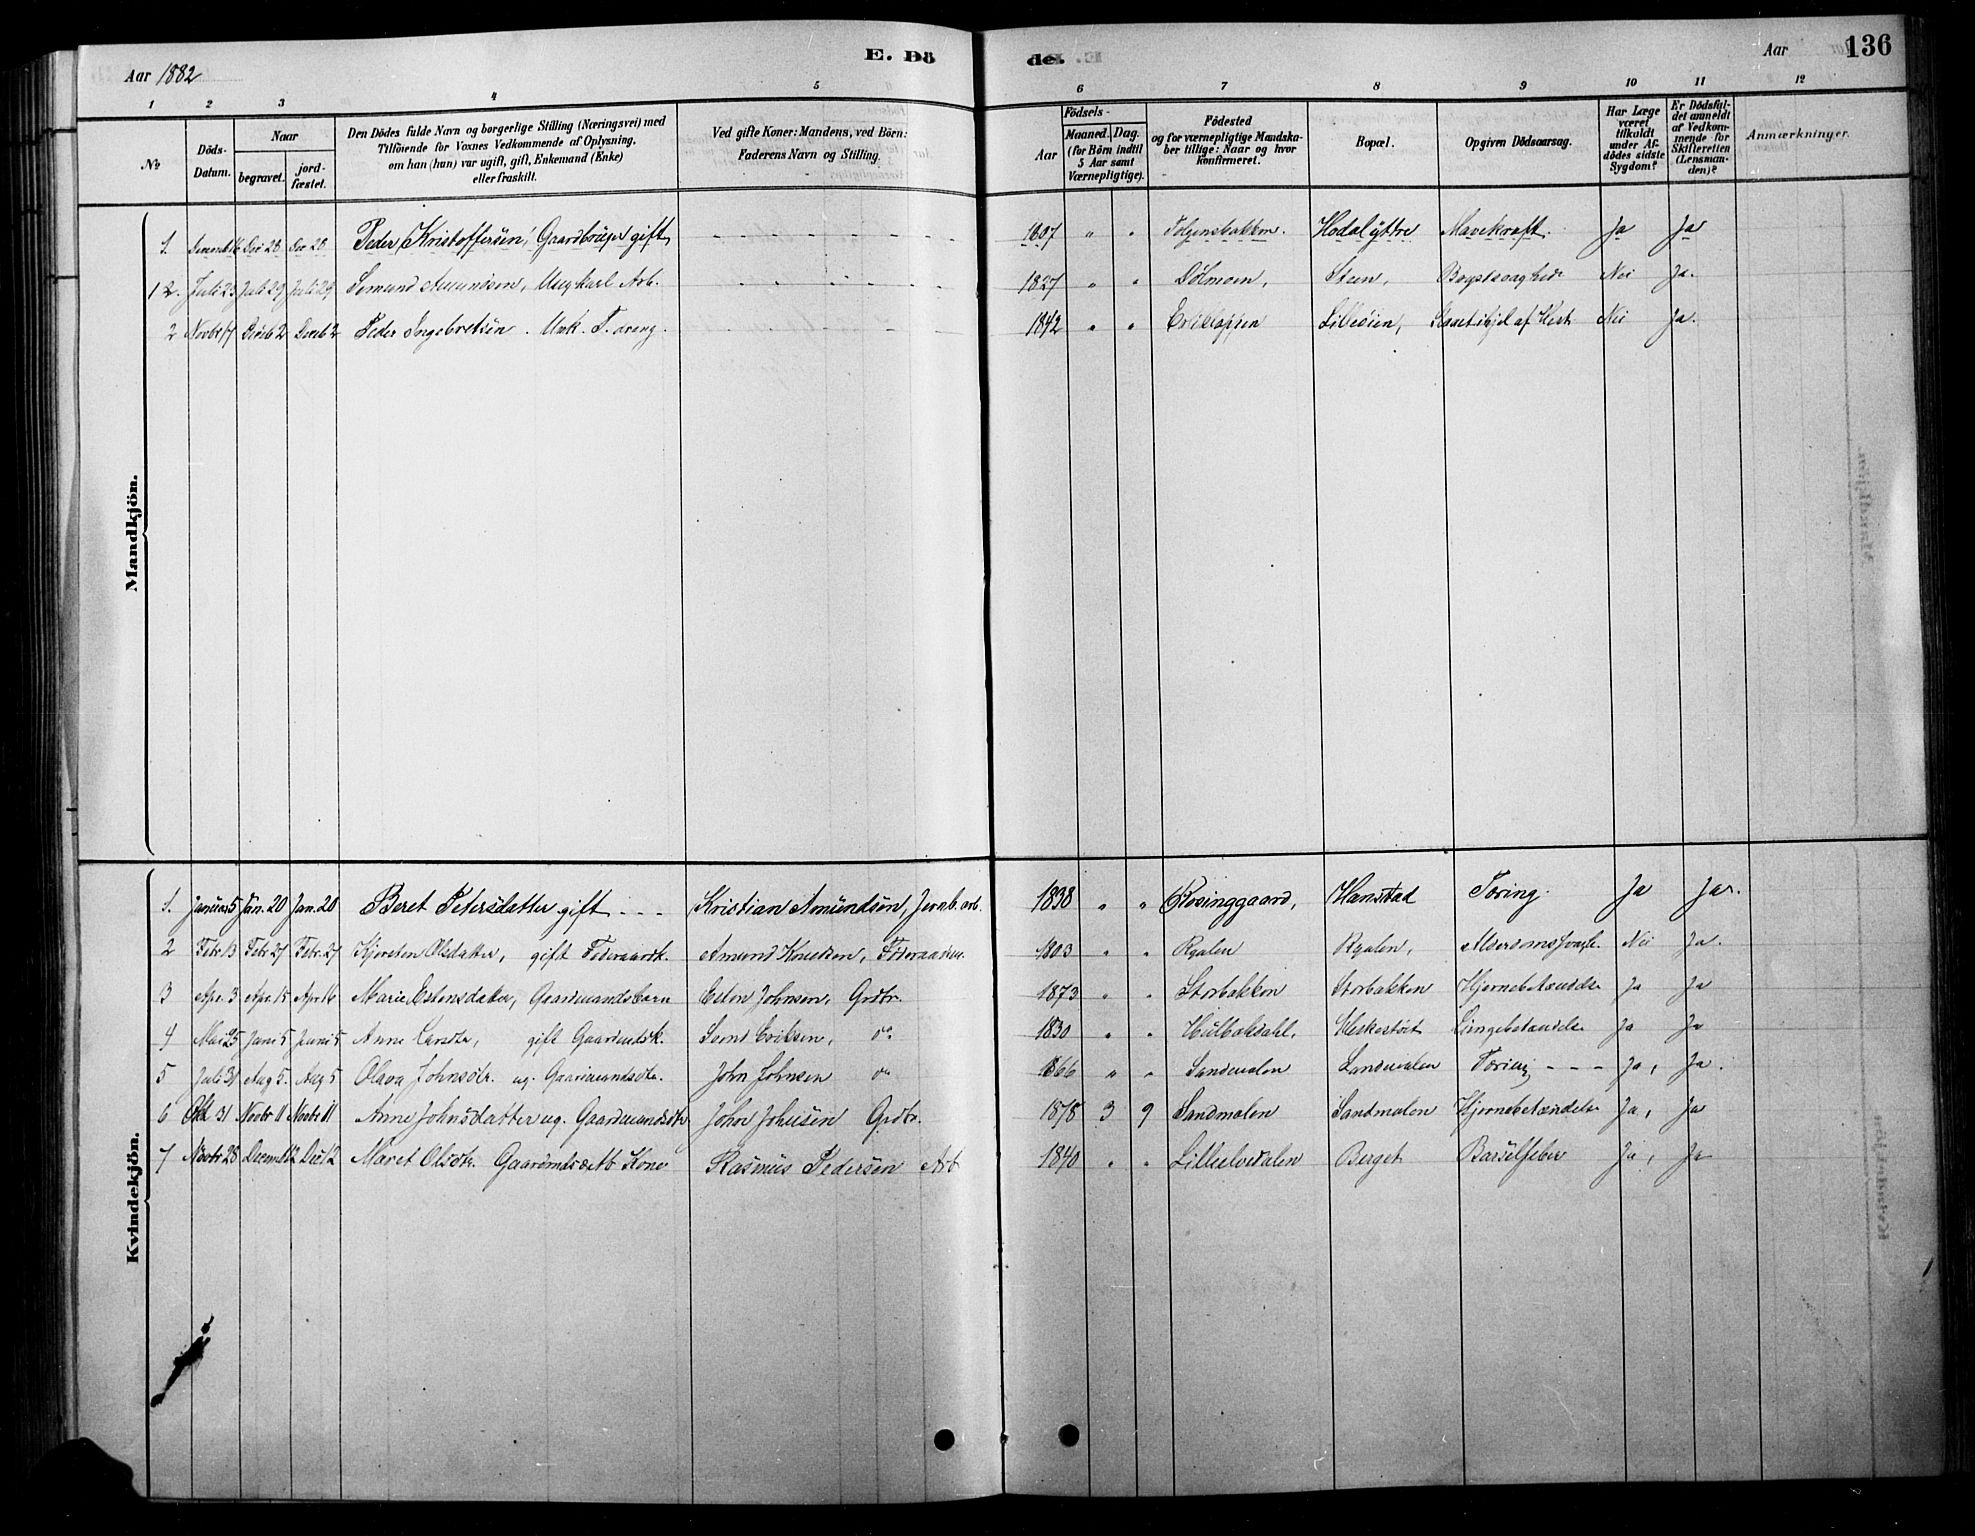 E. Dö de.
Aar 1882
Aar 136
1 2 3 4 5 6 7 8 9 10 11 12
№
Döds-Datum.
Naar
begravet.
jord-fæstet.
Den Dödes fulde Navn og borgerlige Stilling (Næringsvei) med Tilföiende for Voxnes Vedkommende af Oplysning, om han (hun) var ugift, gift, Enkemand (Enke) eller fraskilt.
Ved gifte Koner: Mandens, ved Börn: Faderens Navn og Stilling.
Födsels-
Aar
Maaned. Dag.
(for Börn indtil 5 Aar samt Værnepligtige).
Födested og for værnepligtige Mandskaber tillige: Naar og hvor konfirmeret.
Bopæl.
Opgiven Dödsaarsag.
Har Læge været tilkaldt under Afdödes sidste Sygdom?
Er Dödsfaldet anmeldt af Vedkommende for Skifteretten (Lensmanden)?
Anmærkninger.
Mandkjön.
1. Dec 28 Dec 28 Peder Kristoffersen, Gaardbruger gift 1807 " " Hodal yttre Ja Ja
12. Juli 23 Juli 29 Juli 29 Amundsen, Ungkarl Arb. 1827 " " Dölmoen, Steen, Nei Ja.
2 Novbr 17 Decb 2 Decb 2 Peder Ingebretsen. Unk. T. dreng. 1842 " " Lilleöien, Slaaet ihjel af Hest Nei Ja.
Kvindekjön.
1. Januar 5 Jan. 20 Jan. 20 Beret Petersdatter gift Kristian Amundsen, Jernb. arb. 1838 " " Rosinggaard, Hanestad Tæring. Ja Ja.
2 Febr 13 Febr. 27 Febr. 27 Kjersten Olsdatter, gift Föderaadk. Amund Knudsen, Föderaadm. 1803 " " Ryalen Ryalen, Nei Ja.
3 Apr. 3 Apr. 15 Apr 16 Marie Estensdatter, Gaardmandsbarn Esten Johnsen, Grdbr. 1873 " " Storbakken Storbakken Hjernebetændelse Ja Ja
4 Mai 25 Juni 5 Juni 5 Anne Larsdtr, gift Gaardmdsk. Eriksen, do 1830 " " Lungebetændelse Ja Ja
5 Juli 31 Aug 5. Aug 5 Olava Johnsdtr. ug. Gaardmandsdtr. John Johnsen do 1866 " " Sandmælen Sandmælen Tæring Ja, Ja.
6 Okt 31 Novbr 11 Novbr 11 Anne Johnsdatter ug. Gaardmandsdtr John Johnsen Grdbr. 1878 3 9 Sandmælen Sandmælen Hjernebetændelse Ja, Ja
7 Novbr 28 Decemb 12 Decb 12 Maret Olsdtr. Kone Rasmus Pedersen Arb 1840 " " Lilleelvedalen Berget Barselfeber Ja, Ja